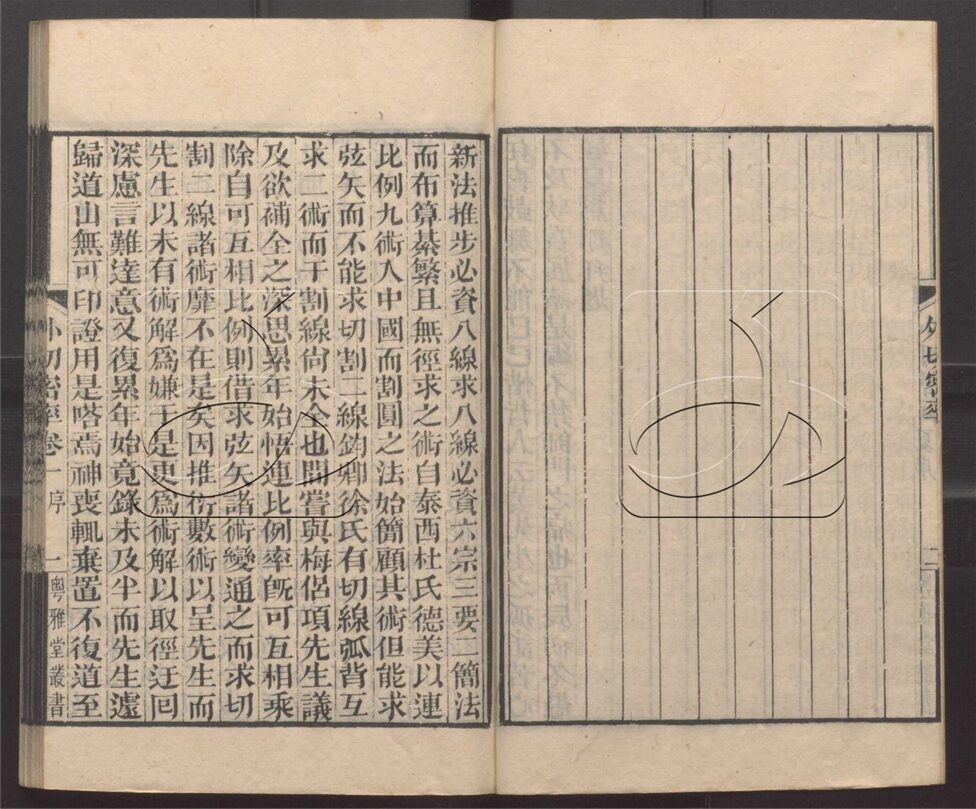 外切密率
序
二
新法推步必資八線求八線必資六宗三要二簡法
而布算綦繁且無徑求之術自泰西杜氏德美以連
比例九術入中國而割圓之法始簡顧其術但能求
弦矢而不能求切割二線鈞卿徐氏有切線弧背互
求二術而于割線尙未全也間嘗與梅侶項先生議
及欲補全之深思累年始悟連比例率旣可互相乘
除自可互相比例則借求弦矢諸術變通之而求切
割二線諸術靡不在是矣因推衍數術以呈先生而
先生以未有術解爲嫌于是更爲術解以取徑迂回
深慮言難達意又復累年始竟錄未及半而先生遽
歸道山無可印證用是嗒焉神喪輒棄置不復道至
外切密率卷一 序 一 粵雅堂叢書